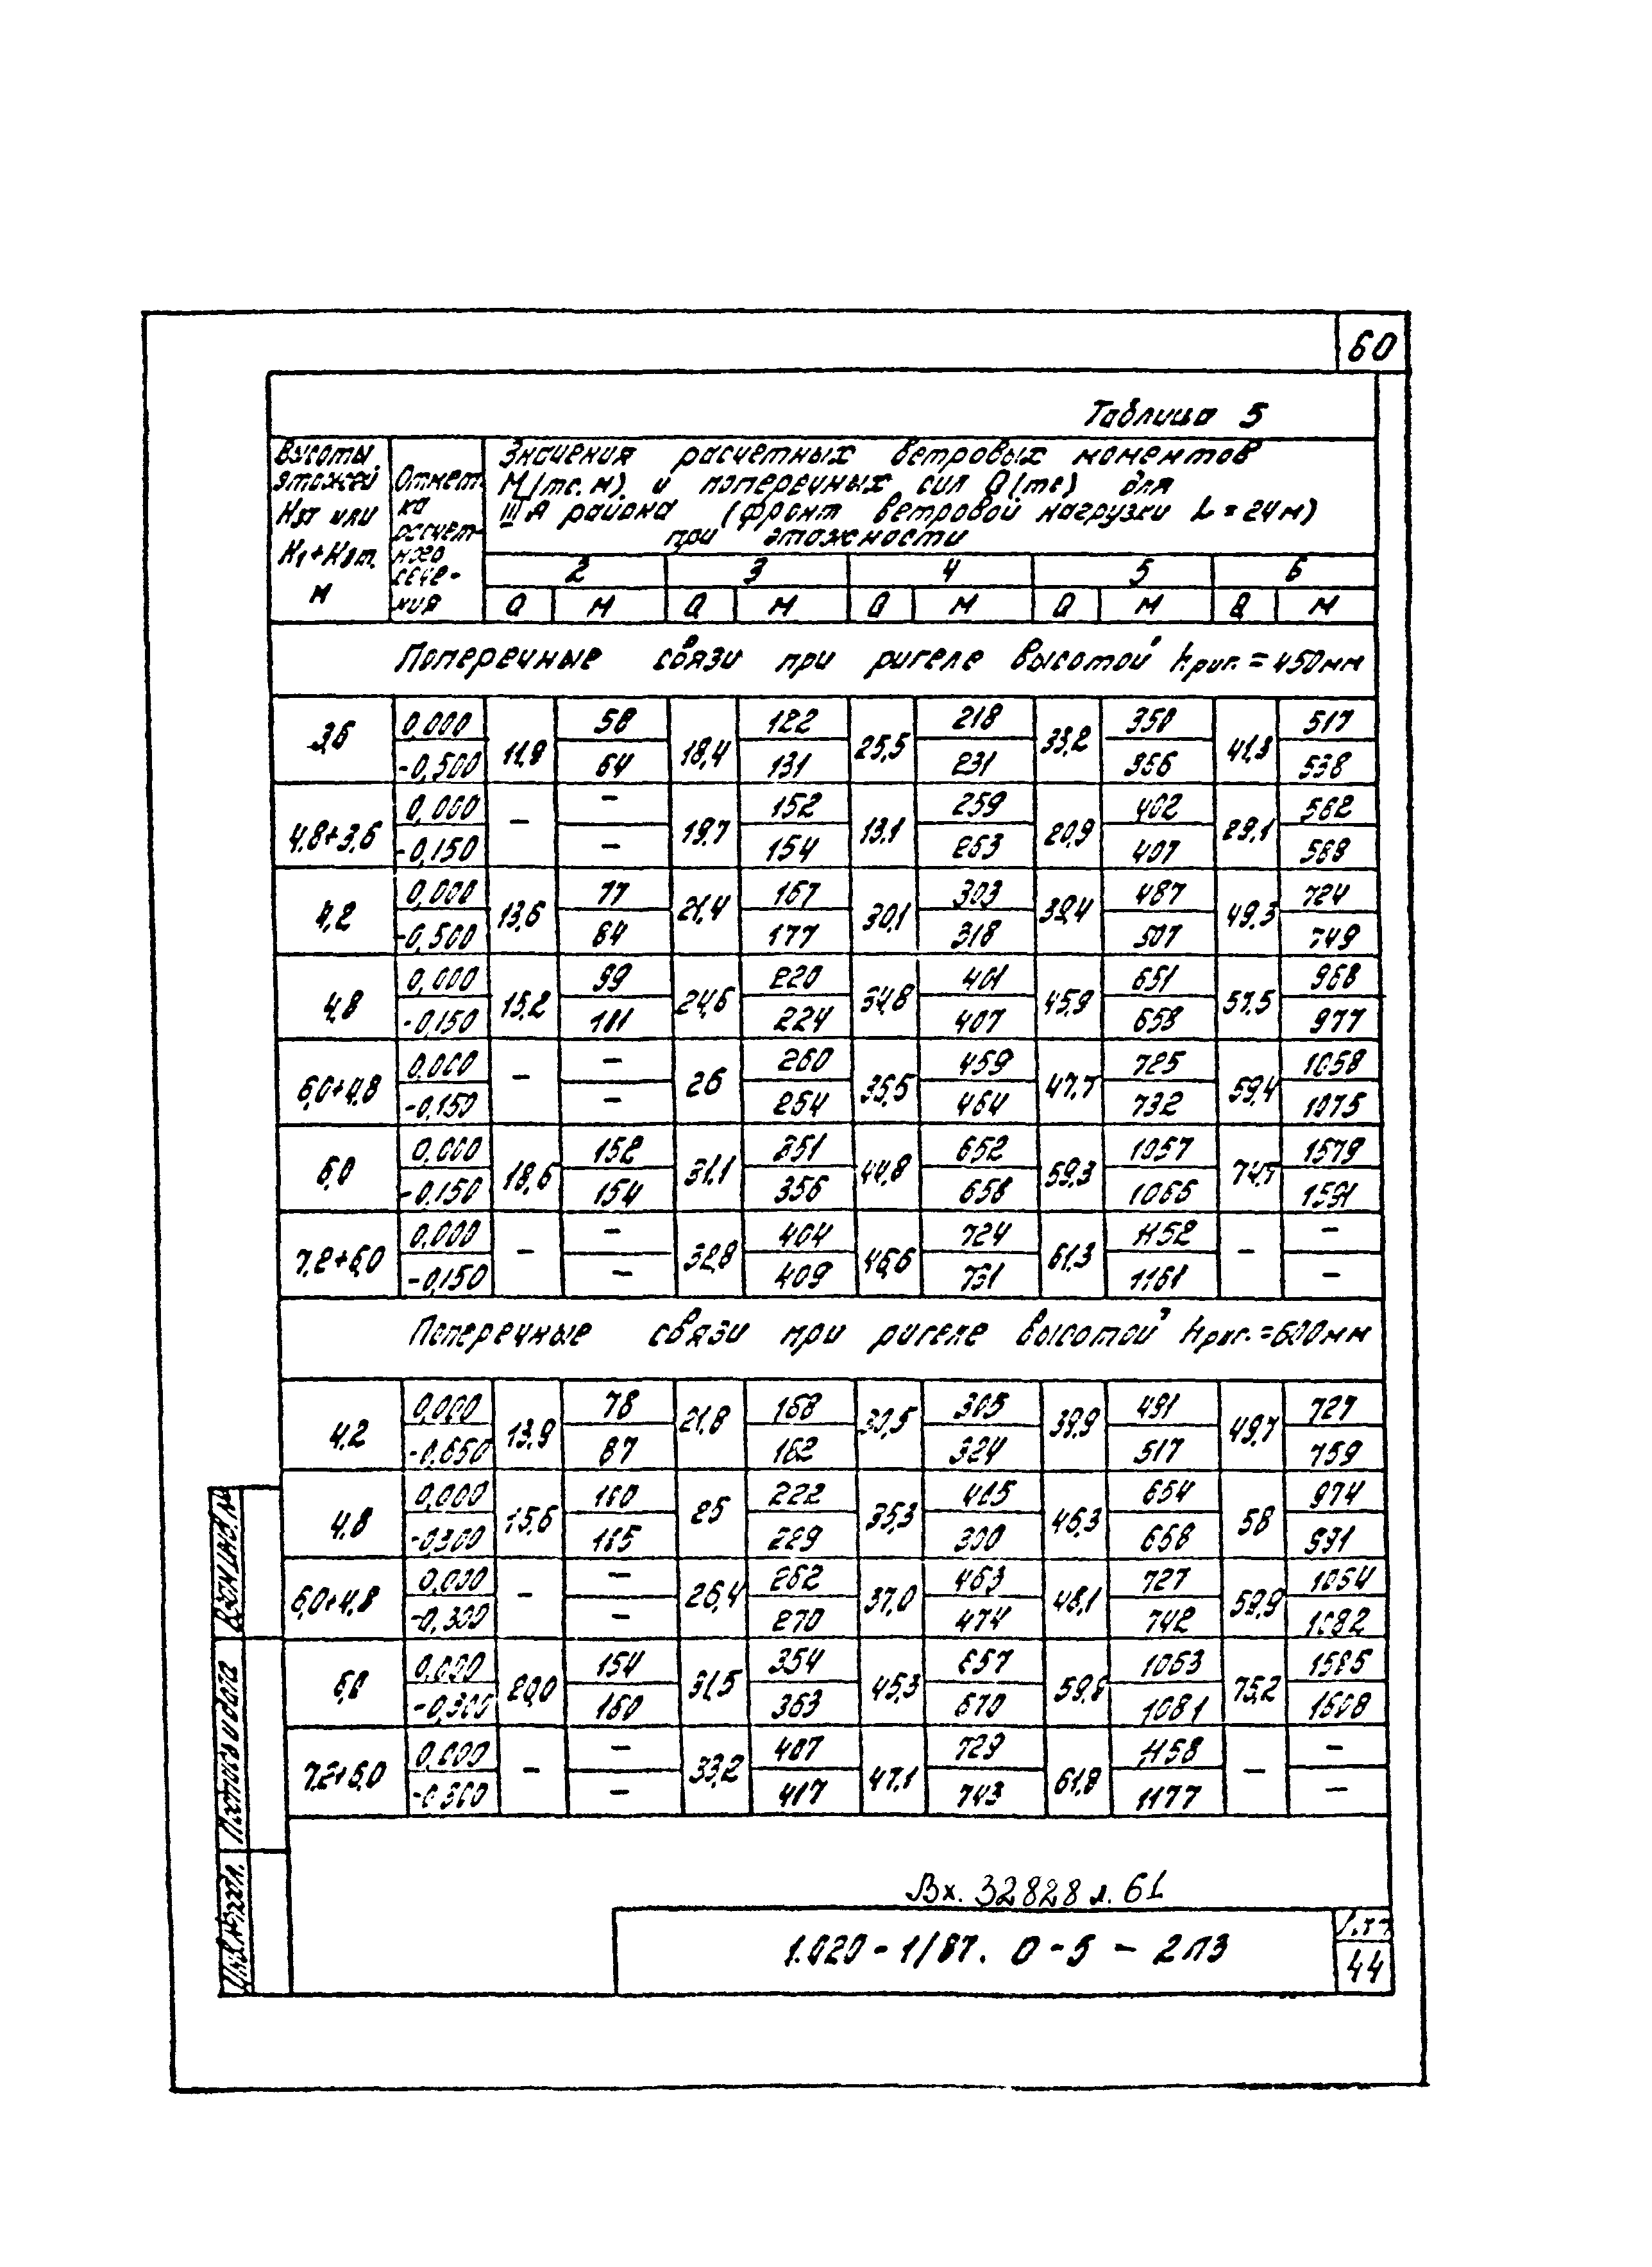 60
Таблица 5
Высоты этажей Нэт или Н1+Нэт. м
Отметка расчетного сечения
Значения расчетных ветровых моментов
М(тс.м) и поперечных сил Q(тс) для
IIIА района (фронт ветровой нагрузки L = 24м)
при этажности
2 3 4 5 6
Q М Q М Q М Q М Q М
Поперечные связи при ригеле высотой hриг. = 450мм
3,6 0,000 11,9 58 18,4 122 25,5 218 33,2 350 41,3 517
-0,500 64 131 231 366 538
4,8+3,6 0,000 – – 19,7 152 13,1 259 20,9 402 29,1 562
-0,150 – 154 263 407 568
4,2 0,000 13,6 77 21,4 167 30,1 303 39,4 487 49,3 724
-0,500 84 177 318 507 749
4,8 0,000 15,2 99 24,6 220 34,8 401 45,9 651 57,5 968
-0,150 101 224 407 658 977
6,0+4,8 0,000 – – 26 260 36,5 459 47,7 725 59,4 1058
-0,150 – 264 464 732 1075
6,0 0,000 18,6 152 31,1 351 44,8 652 59,3 1057 74,7 1579
-0,150 154 356 658 1066 1591
7,2+6,0 0,000 – – 32,8 404 46,6 724 61,3 1152 – –
-0,150 – 409 731 1161 –
Поперечные связи при ригеле высотой hриг. = 600мм
4,2 0,000 13,9 78 21,8 168 30,5 305 39,9 491 49,7 727
-0,650 87 182 324 517 759
4,8 0,000 15,6 100 25 222 35,3 405 46,3 654 58 974
-0,300 105 229 300 668 991
6,0+4,8 0,000 – – 26,4 262 37,0 463 48,1 727 59,9 1064
-0,300 – 270 474 742 1082
6,0 0,000 20,0 154 31,5 354 45,3 657 59,8 1063 75,2 1585
-0,300 160 363 670 1081 1608
7,2+6,0 0,000 – – 33,2 407 47,1 729 61,8 1158 – –
-0,300 – 417 743 1177 –
Взам.инв.№
Подпись и дата
Инв.№подл.
Вх. 32828 л. 61
1.020-1/87. 0-5-2ПЗ
Лист
44